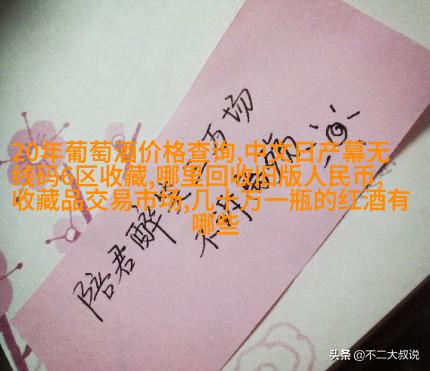 20年葡萄酒价格查询,中文日产幕无
线码6区收藏,哪里回收旧版人民币,
收藏品交易市场,几十万一瓶的红酒有
哪些
陪君醉笑三万场
不诉离殇
头条 @不二大叔说